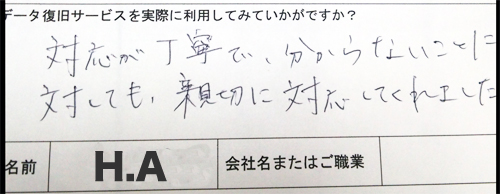 データ復旧サービスを実際に利用してみていかがですか？
対応が丁寧で、分からないことに
対しても、親切に対応してくれました
名前 H.A 会社名またはご職業